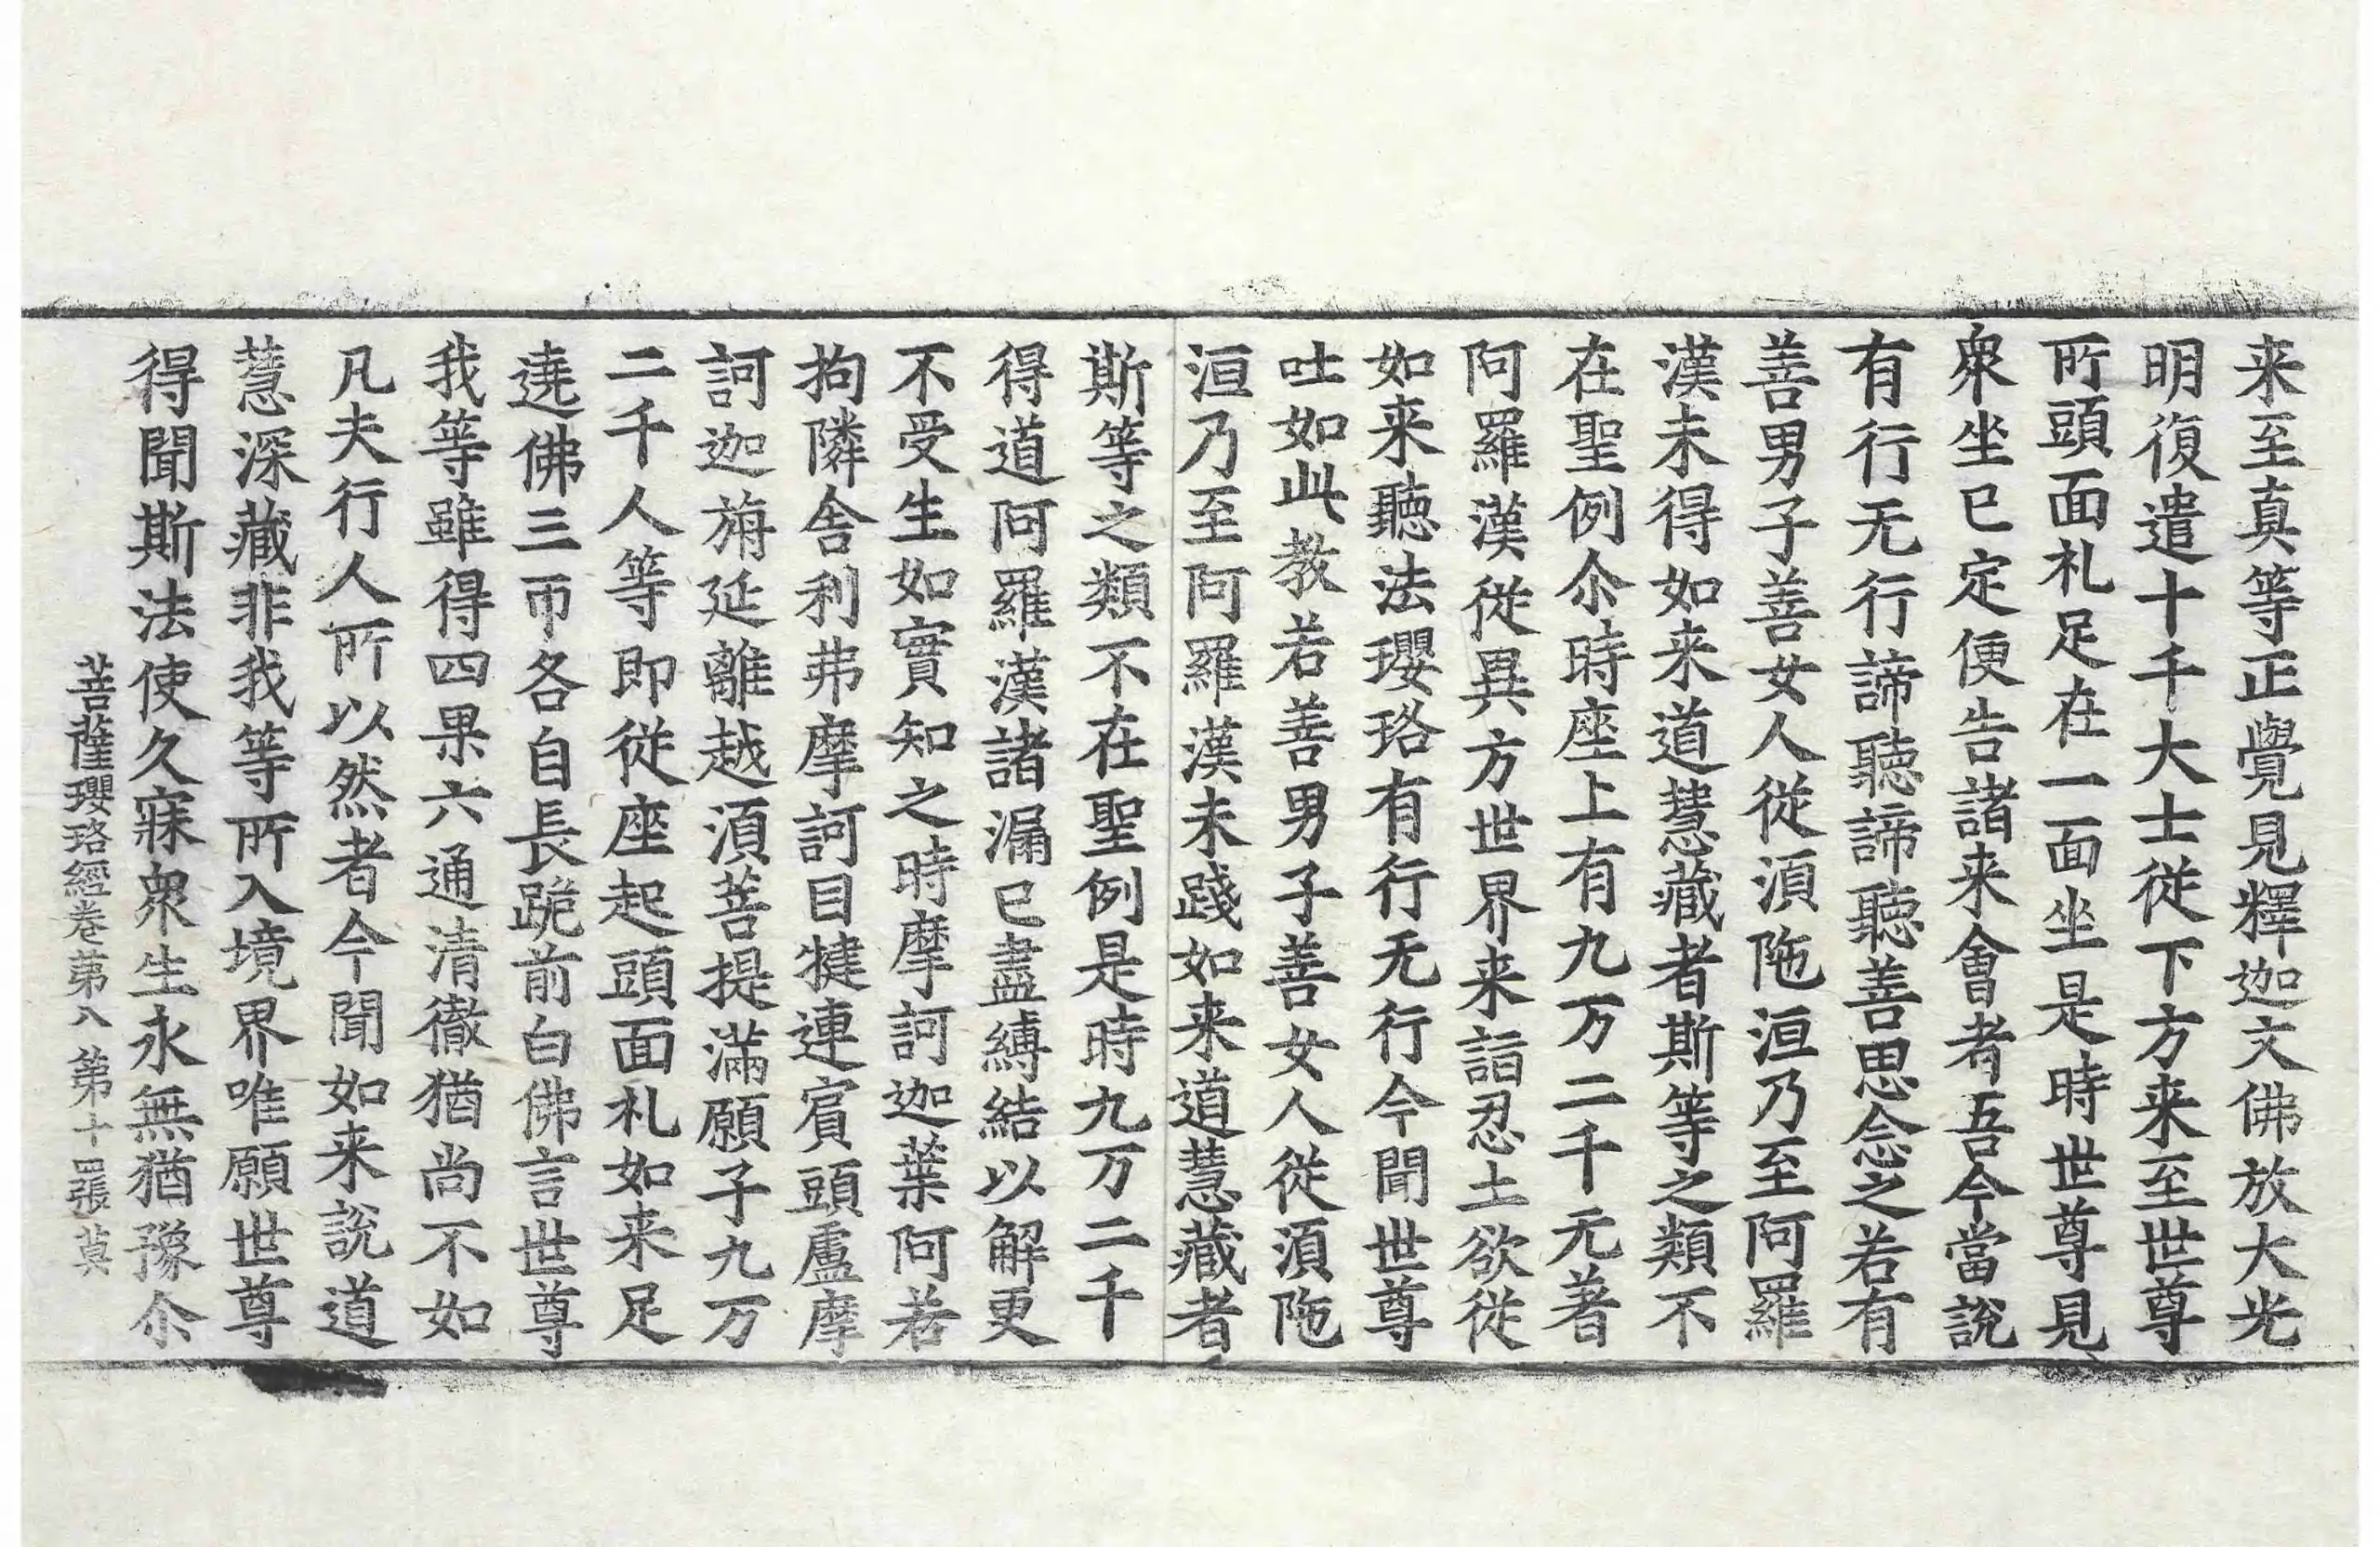 来至真等正覺見釋迦文佛放大光
明復遣十千大士從下方来至世尊
所頭面礼足在一面坐是時世尊見
衆坐已定便告諸来會者吾今當說
有行无行諦聽諦聽善思念之若有
善男子善女人從湏陁洹乃至阿羅
漢未得如来道慧藏者斯等之類不
在聖例尒時座上有九万二千无著
阿羅漢從異方世界来詣忍土欲從
如来聽法瓔珞有行无行今聞世尊
吐如此教若善男子善女人從湏陁
洹乃至阿羅漢未踐如来道慧藏者
斯等之類不在聖例是時九万二千
得道阿羅漢諸漏已盡縛結以解更
不受生如實知之時摩訶迦葉阿若
拘隣舍利弗摩訶目揵連賓頭盧摩
訶迦旃延離越湏菩提滿願子九万
二千人等即從座起頭面礼如来足
遶佛三帀各自長跪前白佛言世尊
我等雖得四果六通清徹猶尚不如
凡夫行人所以然者今聞如来說道
慧深藏非我等所入境界唯願世尊
得聞斯法使久寐衆生永無猶豫尒
菩薩瓔珞經卷第八 第十四張 莫